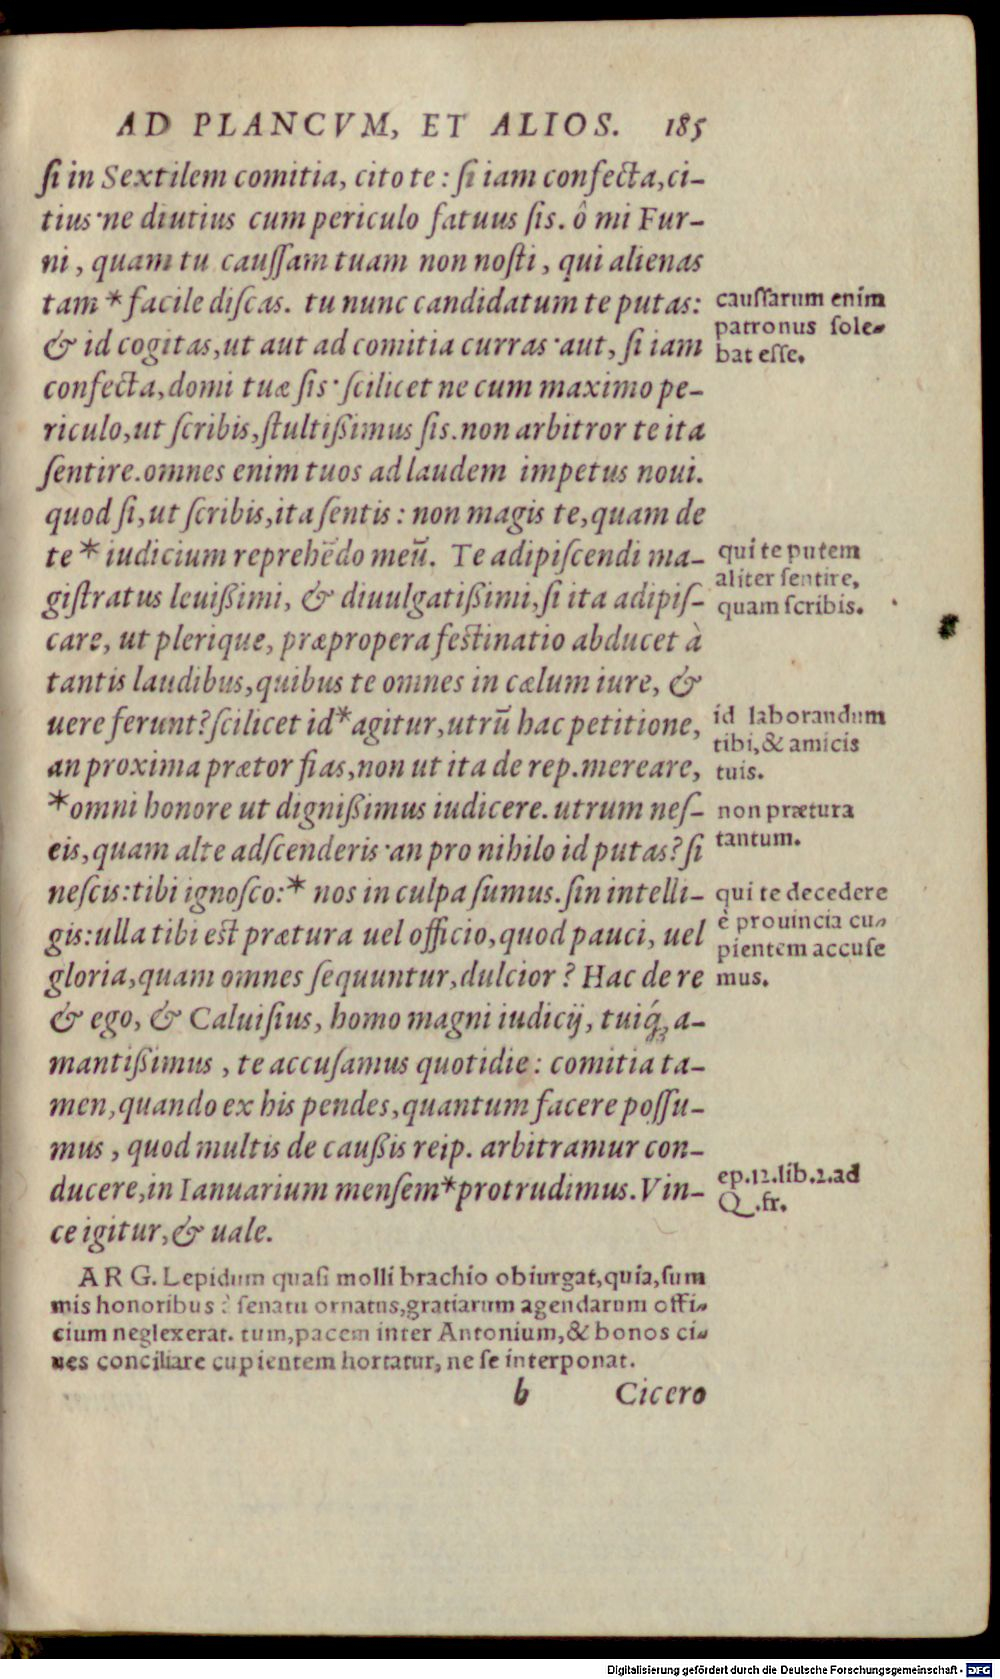 AD PLANCVM, ET ALIOS. 185
ſi in Sextilem comitia, cito te: ſi iam confecta, ci-
tius·ne diutius cum periculo fatuus ſis. ô mi Fur-
ni, quam tu cauſſam tuam non noſti, qui alienas
tam * facile diſcas. tu nunc candidatum te putas:
& id cogitas, ut aut ad comitia curras·aut, ſi iam
confecta, domi tuæ ſis·ſcilicet ne cum maximo pe-
riculo, ut ſcribis, ſtultißimus ſis. non arbitror te ita
ſentire. omnes enim tuos ad laudem impetus noui.
quod ſi, ut ſcribis, ita ſentis: non magis te, quam de
te * iudicium reprehẽdo meũ. Te adipiſcendi ma-
giſtratus leuißimi, & diuulgatißimi, ſi ita adipiſ-
care, ut plerique, præpropera feſtinatio abducet à
tantis laudibus, quibus te omnes in cælum iure, &
uere ferunt? ſcilicet id * agitur, utrũ hac petitione,
an proxima prætor fias, non ut ita de rep. mereare,
* omni honore ut dignißimus iudicere. utrum neſ-
cis, quam alte adſcenderis·an pro nihilo id putas? ſi
neſcis: tibi ignoſco: * nos in culpa ſumus. ſin intelli-
gis: ulla tibi eſt prætura uel officio, quod pauci, uel
gloria, quam omnes ſequuntur, dulcior? Hac de re
& ego, & Caluiſius, homo magni iudicij, tuiq́; a-
mantißimus, te accuſamus quotidie: comitia ta-
men, quando ex his pendes, quantum facere poſſu-
mus, quod multis de caußis reip. arbitramur con-
ducere, in Ianuarium menſem * protrudimus. Vin-
ce igitur, & uale.
cauſſarum enim
patronus ſole-
bat eſſe.
qui te putem
aliter ſentire,
quam ſcribis.
id laborandum
tibi, & amicis
tuis.
non prætura
tantum.
qui te decedere
è prouincia cu-
pientem accuſe
mus.
ep. 12. lib. 2. ad
Q. fr.
ARG. Lepidum quaſi molli brachio obiurgat, quia, ſum
mis honoribus à ſenatu ornatus, gratiarum agendarum offi-
cium neglexerat. tum, pacem inter Antonium, & bonos ci-
ues conciliare cupientem hortatur, ne ſe interponat.
b Cicero
Digitalisierung gefördert durch die Deutsche Forschungsgemeinschaft - DFG